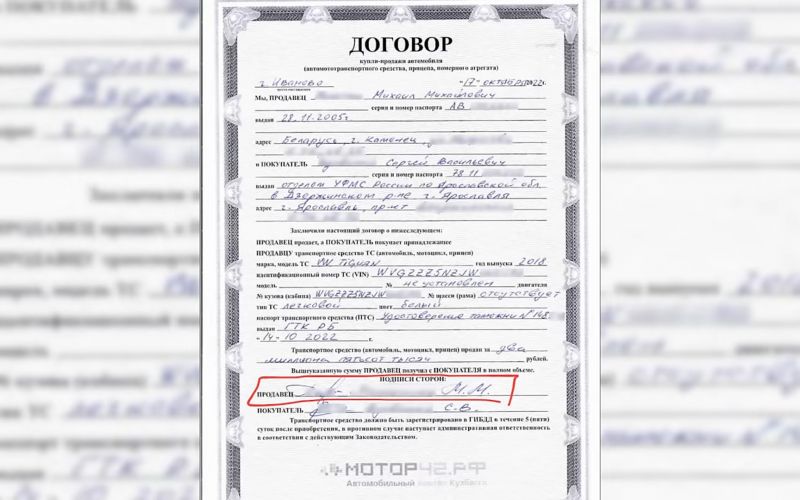 ДОГОВОР
купли-продажи автомобиля
(автомототранспортного средства, прицепа, номерного агрегата)
г. Иваново "17" октября 2022г.
Мы, ПРОДАВЕЦ Михаил Михайлович
серия и номер паспорта АВ
выдан 28.11.2005г.
адрес Беларусь, г. Каменец,
и ПОКУПАТЕЛЬ Сергей Васильевич
серия и номер паспорта 78 11
выдан отделом УФМС России по Ярославской обл.
в Дзержинском р-не г. Ярославля
адрес г. Ярославль, пр-кт
Заключили настоящий договор о нижеследующем:
ПРОДАВЕЦ продает, а ПОКУПАТЕЛЬ покупает принадлежащее
ПРОДАВЦУ транспортное средство ТС (автомобиль, мотоцикл, прицеп)
марка, модель ТС VW Tiguan год выпуска 2018
идентификационный номер ТС (VIN) WVGZZZ5NZJW
модель № не установлен двигателя
№ кузова (кабина) WVGZZZ5NZJW № щасси (рама) отсутствует
тип ТС легковой цвет белый
паспорт транспортного средства (ПТС) Удостоверение таможни № 148
выдан ГТК РБ
"14" 10 2022 г.
Транспортное средство (автомобиль, мотоцикл, прицеп) продан за два
миллиона пятьсот тысяч рублей.
Вышеуказанную сумму ПРОДАВЕЦ получил с ПОКУПАТЕЛЯ в полном объеме.
ПОДПИСИ СТОРОН:
ПРОДАВЕЦ М.М.
ПОКУПАТЕЛЬ С.В.
Транспортное средство должно быть зарегистрировано в ГИБДД в течение 5 (пяти)
суток после приобретения, в противном случае наступает административная ответственность
в соответствии с действующим Законодательством.
МОТОР42.РФ
Автомобильный портал Кузбасса